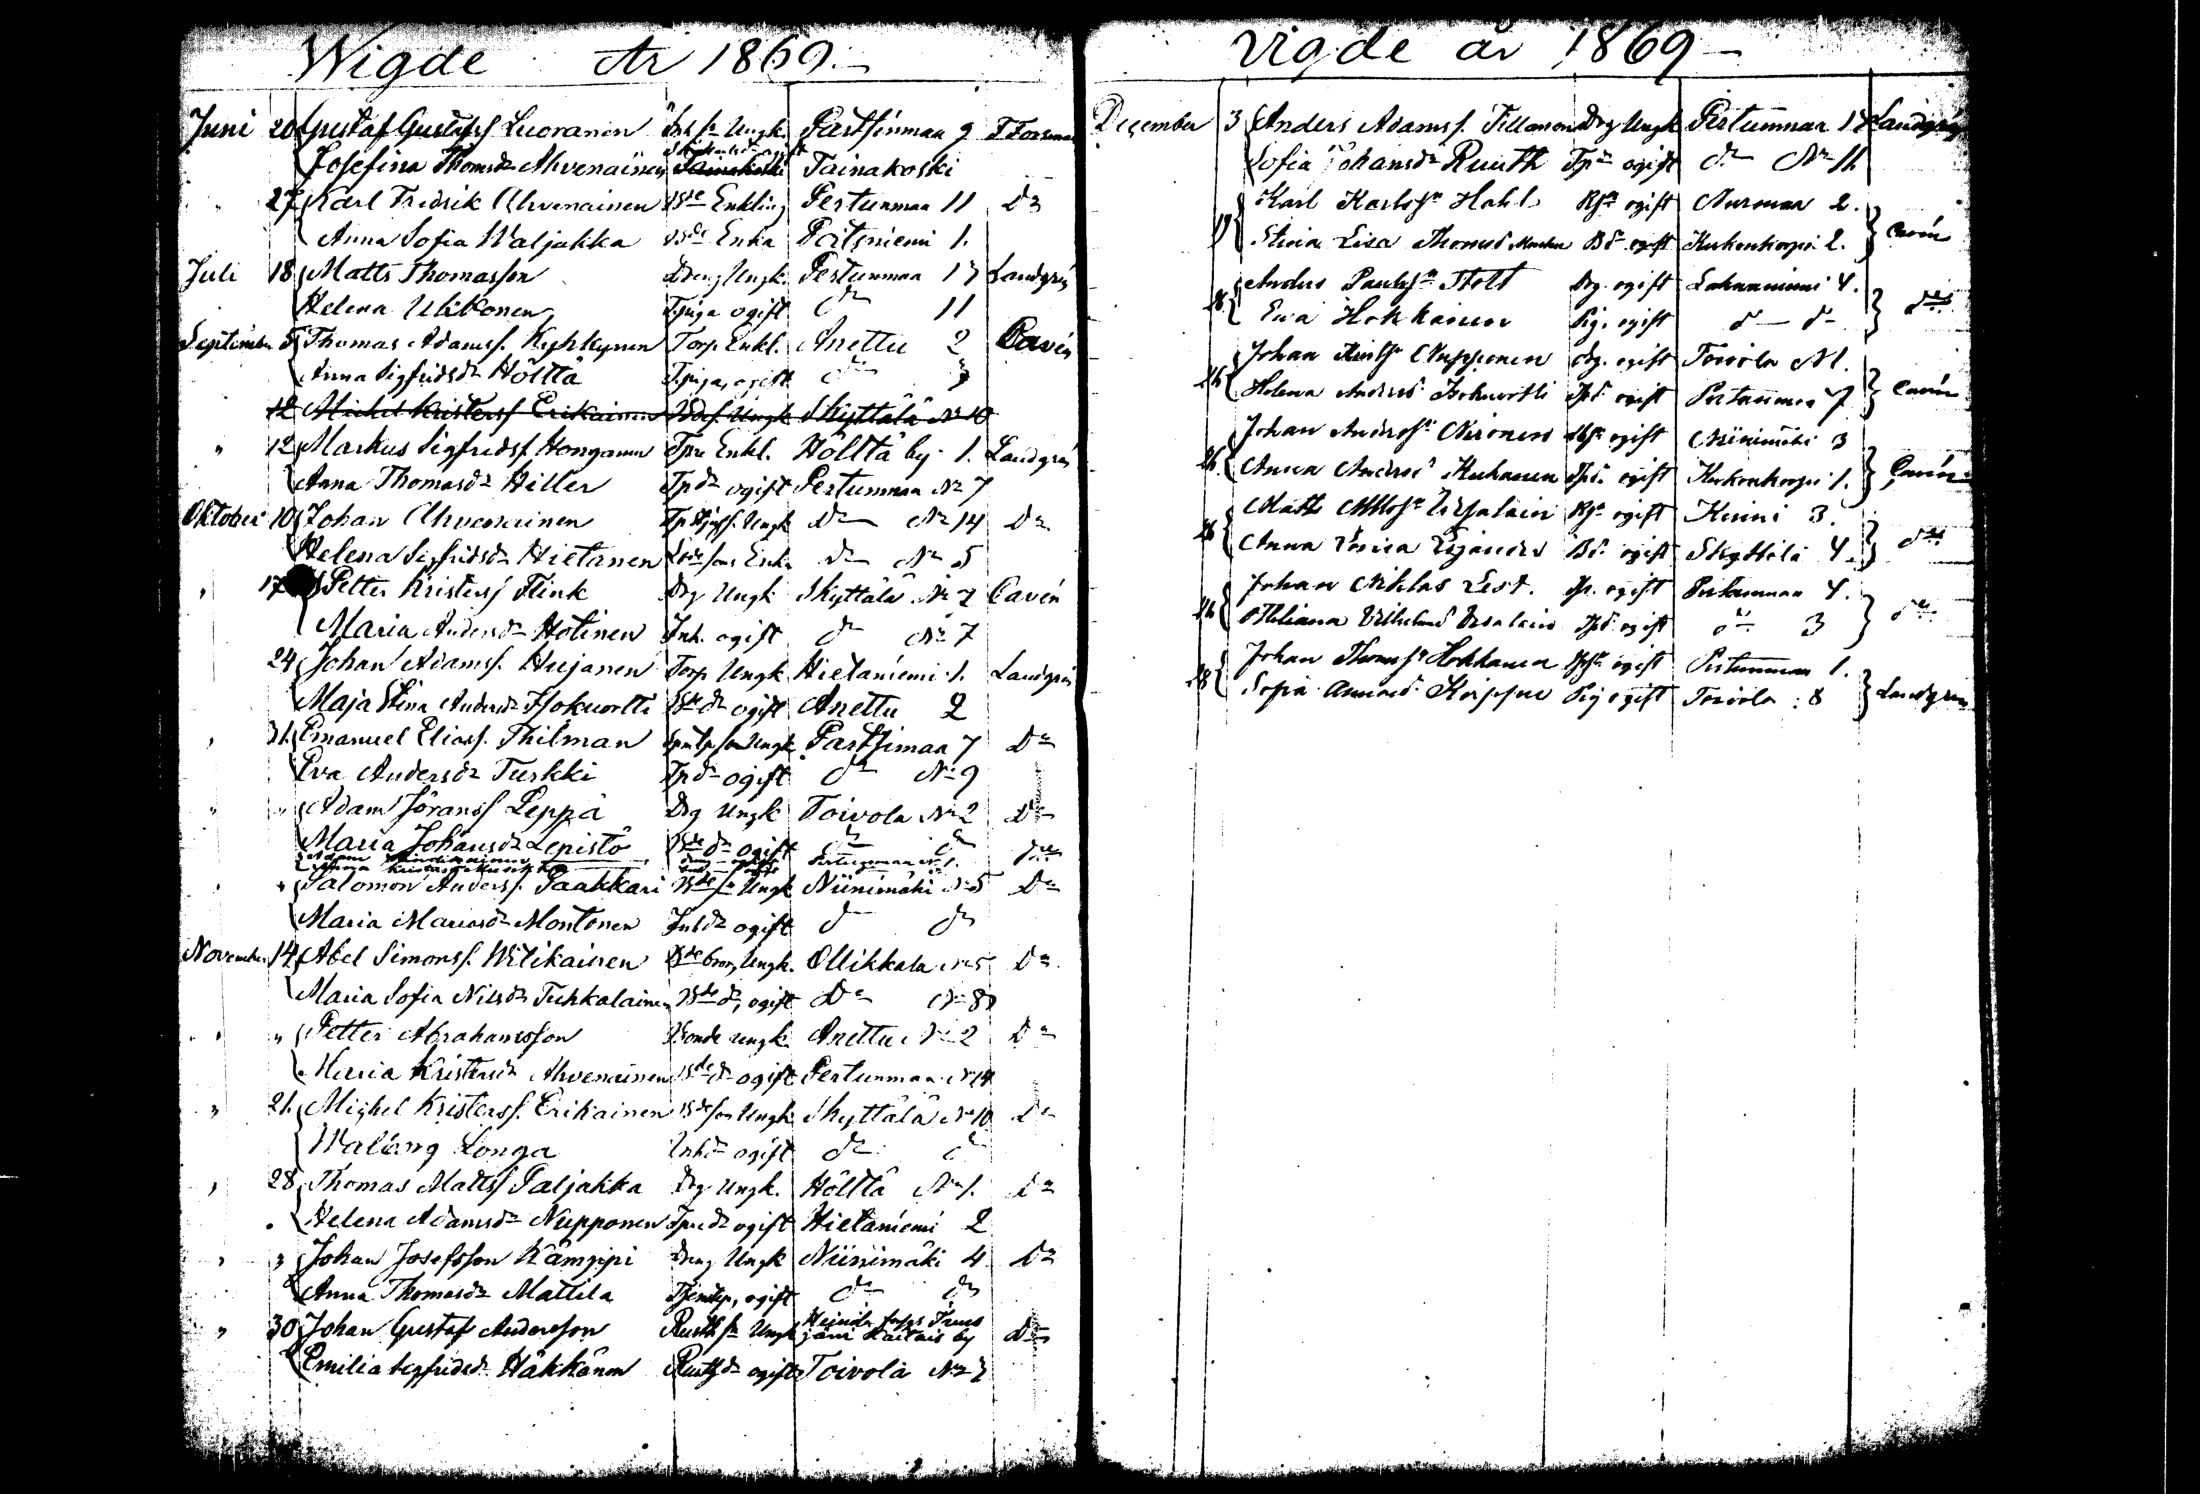 Wigde År 1869.
Juni 20 Gustaf Gustafss Luoranen Inh sn Ungk. Partsinmaa 9 F Forsman
Josefina Thomsdr Ahvenainen ogift Tainakoski
" 27 Karl Fredrik Ahvenainen Bde Enkling Pertunmaa 11 Do
Anna Sofia Waljakka Bde Enka Pätsniemi 1.
Juli 18 Matts Thomasson Dreng Ungk. Pertunmaa 17 Landgrén
Helena Ukkonen Tjpiga ogift do 11
September 5 Thomas Adamss. Kyhkynen Torp. Enkl. Anettu 2 Cavén
Anna Sigfridsdr Hölttä Tjpiga, ogift do 3
12 Michel Kristerss Erikainen Bdes. Ungk Skyttälä No 10
" 12 Markus Sigfridss Hongamaa Tpre Enkl. Hölttä by 1. Landgrén
Anna Thomasdr Hiller Tpdr ogift Pertunmaa No 7
Oktober 10 Johan Ahvenainen Ungk do No 14 Do
Helena Sigfridsdr Hietanen Enka do No 5
" 17 Petter Kristerss Flink Drg Ungk Skyttälä No 7 Cavén
Maria Andersdr Hotinen Inh. ogift do No 7
24 Johan Adamss. Hujanen Torp Ungk Hietaniemi 1. Landgrén
Maja Stina Andersdr Isokuortti Bde dr ogift Anettu 2
" 31 Emanuel Eliass. Thilman Ungk Partsimaa 7 Do
Eva Andersdr Turkki Tpdr ogift do No 9
" " Adam Göranss Leppä Drg Ungk Toivola No 2 Do
Maria Johansdr Lepistö Bde dr ogift do do
Adam Pertunmaa No 1. do
Anna Kristersdr
" " Salomon Anderss. Paakkari Bde sn Ungk Niinimäki No 5 Do
Maria Mariasdr Montonen Inhdr ogift do do
November 14 Abel Simonss. Witikainen Bde Ungk. Ollikkala No 5 Do
Maria Sofia Nilsdr Tuhkalainen Bde dr, ogift Do No 8
" " Petter Abrahamsson Bonde ungk. Anettu No 2 Do
Maria Kristersdr Ahvenainen Bde dr ogift Pertunmaa No 14
" 21. Michel Kristerss. Erikainen Bde son Ungk Skyttälä No 10 Do
Walborg Longa Inhdr ogift do do
" 28 Thomas Mattss Paljakka Drg Ungk. Hölttä No 1. Do
Helena Adamsdr Nupponen Tpredr ogift Hietaniemi 2
" " Johan Josefsson Kämppi Dreng Ungk Niinimäki 4 Do
Anna Thomasdr Mattila Tjenstep, ogift do do
" 30 Johan Gustaf Andersson Rusth sn Ungk Heinola by Do
Emilia Sigfridsdr Häkkänen Rusthdr ogift Toivola No 3
Vigde år 1869
December 3 Anders Adamss. Tillman Drg Ungk Pertunmaa 17 Landgrén
Sofia Johansdr Ruuth Tpdr ogift do No 11
17 Karl Karlssn Hahl Rsn ogift Auromaa 2. Cavén
Stina Lisa Thomasd. Bd. ogift Kuhankorpi 2.
26 Anders Paulssn Stolt Drg. ogift Lahnaniemi 4. do
Eva Hokkanen Pig. ogift do do
26 Johan Nupponen drg. ogift Toivola No 1. Cavén
Helena Andersd. Isokuortti Tpd. ogift Pertunmaa 7
26 Johan Anderssn Nironen ogift Niinimäki 3 Cavén
Anna Andersd. Kuhanen Tpd. ogift Kuhankorpi 1.
26 Matts Ursalain Rsn ogift Kinni 3. do
Anna Lovisa Bd. ogift Skyttälä 4.
26 Johan Niklas List. ogift Pertunmaa 4. do
Vilhelmsd Ursalain Tpd. ogift do 3
28 Johan Thomassn Hokkanen ogift Pertunmaa 1. Landgren
Sofia Koippa Pig ogift Toivola 8